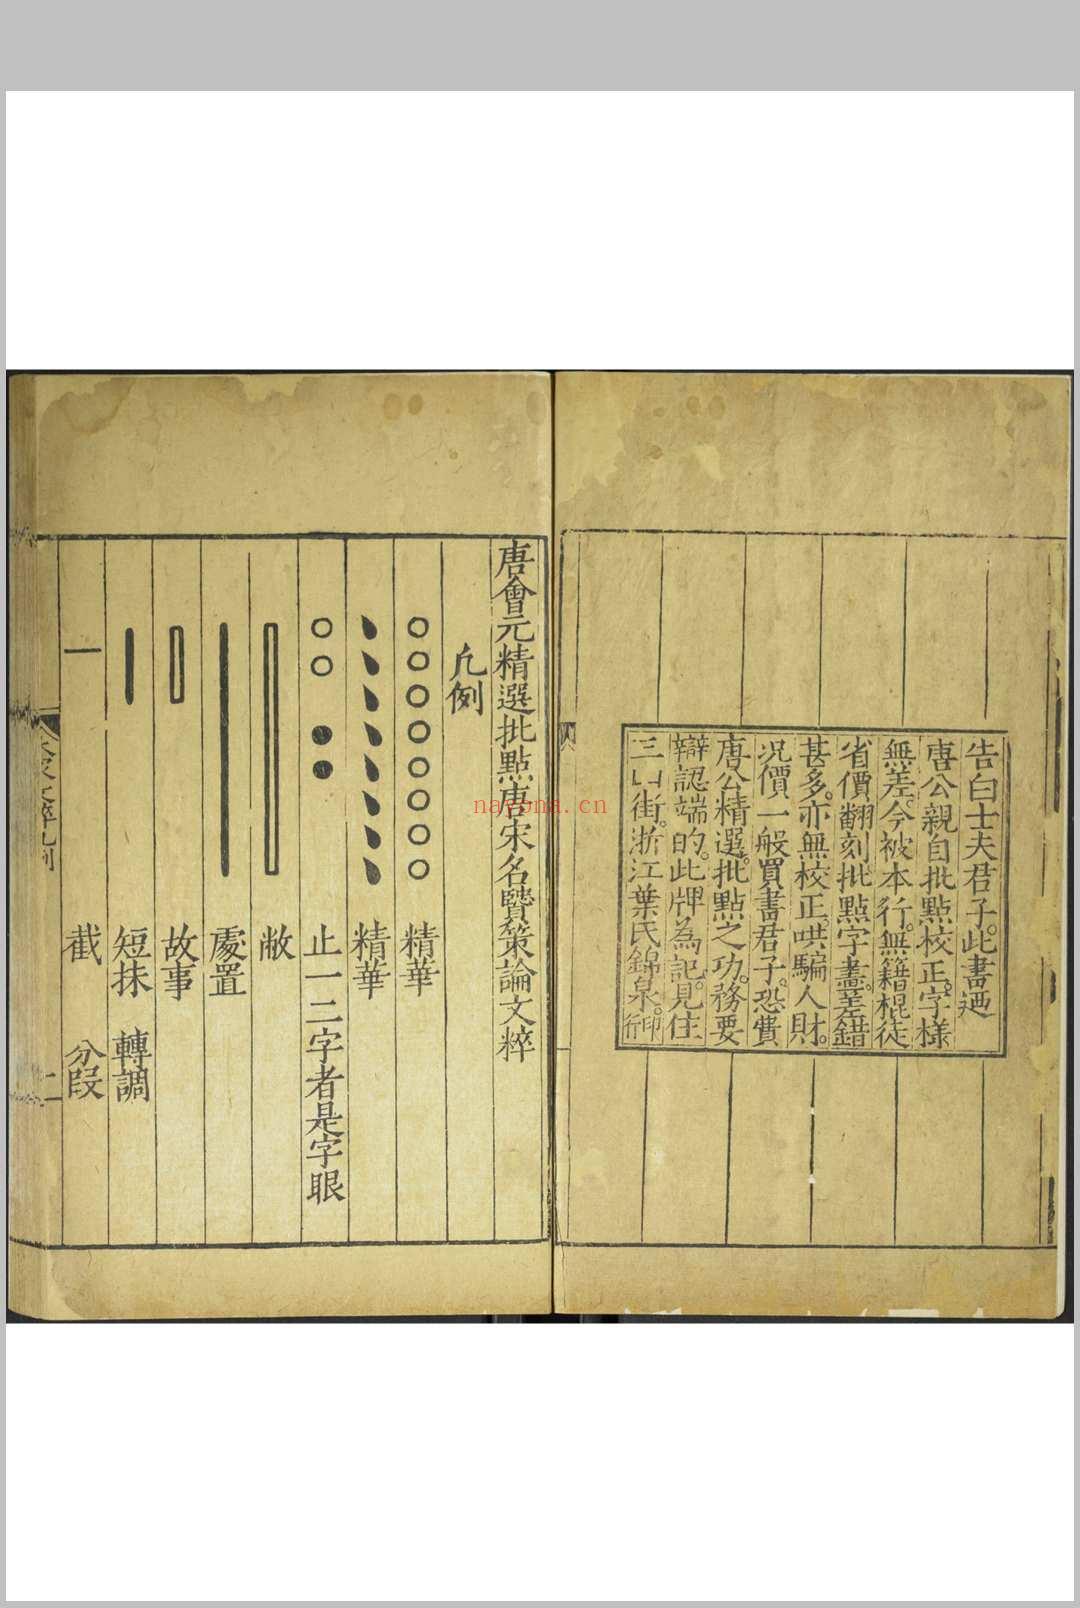 告白士夫君子。此書迺
唐公親自批點校正。字樣
無差。今被本行。無籍棍徒
省價翻刻。批點字畫。差錯
甚多。亦無校正。哄騙人財。
况價一般。買書君子。恐費
唐公精選。批點之功。務要
辯認端的。此牌為記。見住
三山街。浙江葉氏錦泉。印行
唐會元精選批點唐宋名賢策論文粹
凡例
○○○○○○○○ 精華
精華
○○ ●● 止一二字者是字眼
敝
處置
故事
短抹 轉調
一 截 分段
文粹凡例
二
nayona.cn